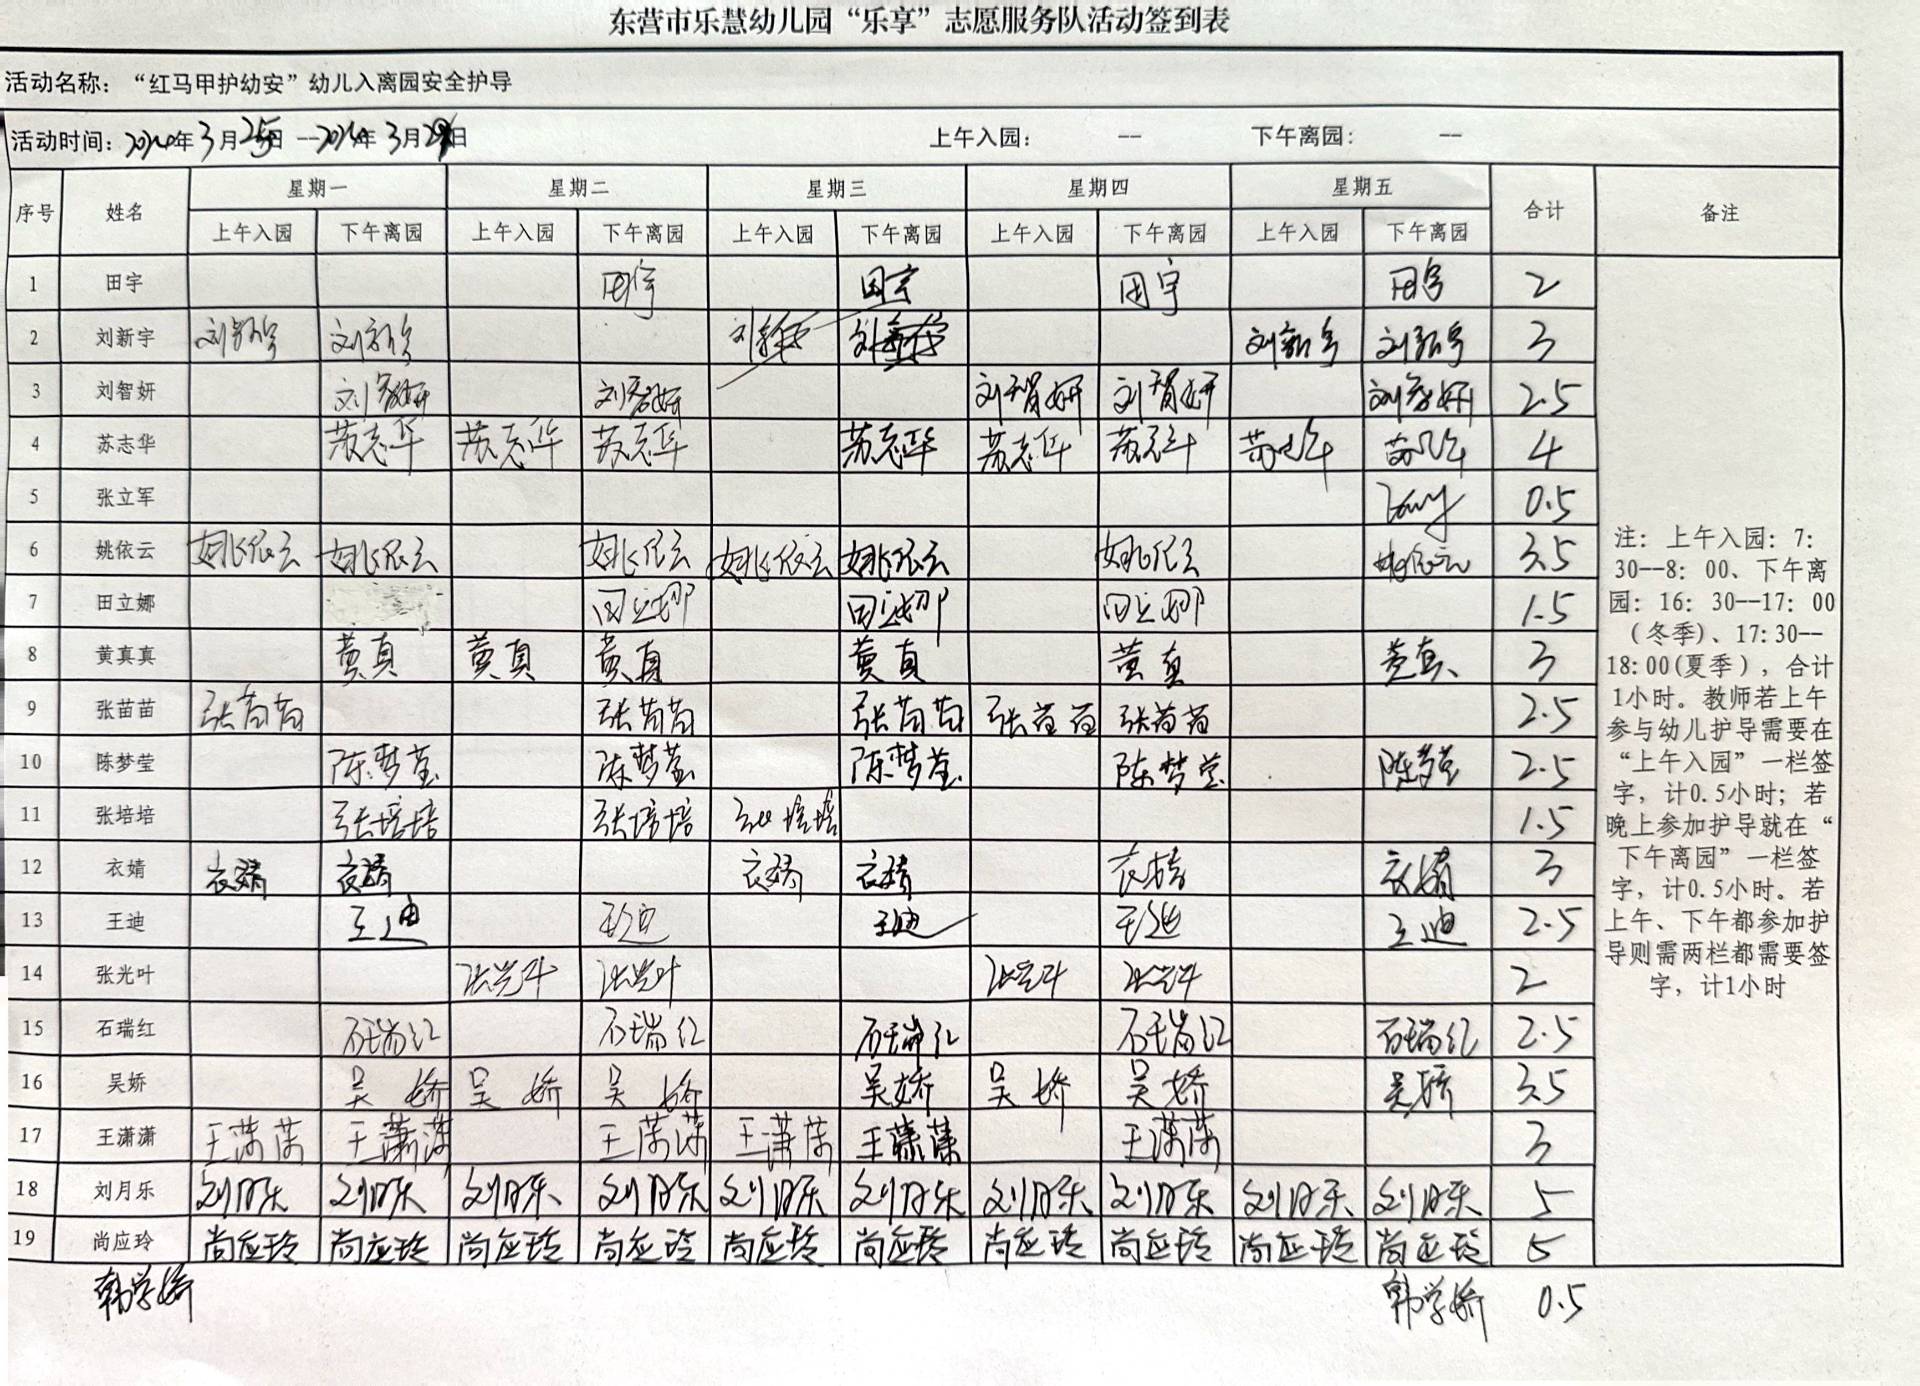 东营市乐慧幼儿园“乐享”志愿服务队活动签到表
活动名称：“红马甲护幼安”幼儿入离园安全护导
活动时间：2024年3月25日--2024年3月29日 上午入园： -- 下午离园： --
序号 姓名 星期一 星期二 星期三 星期四 星期五 合计 备注
上午入园 下午离园 上午入园 下午离园 上午入园 下午离园 上午入园 下午离园 上午入园 下午离园
1 田宇 田宇 田宇 田宇 田宇 2
2 刘新宇 刘新宇 刘新宇 刘新宇 刘新宇 3
3 刘智妍 刘智妍 刘智妍 刘智妍 刘智妍 刘智妍 2.5
4 苏志华 苏志华 苏志华 苏志华 苏志华 苏志华 苏志华 苏志华 苏志华 4
5 张立军 0.5
6 姚依云 姚依云 姚依云 姚依云 姚依云 姚依云 姚依云 姚依云 3.5
7 田立娜 田立娜 田立娜 田立娜 1.5
8 黄真真 黄真 黄真 黄真 黄真 黄真 黄真 3
9 张苗苗 张苗苗 张苗苗 张苗苗 张苗苗 张苗苗 2.5
10 陈梦莹 陈梦莹 陈梦莹 陈梦莹 陈梦莹 陈梦莹 2.5
11 张培培 张培培 张培培 张培培 1.5
12 衣婧 衣婧 衣婧 衣婧 衣婧 衣婧 衣婧 3
13 王迪 王迪 王迪 王迪 王迪 王迪 2.5
14 张光叶 张光叶 张光叶 张光叶 张光叶 2
15 石瑞红 石瑞红 石瑞红 石瑞红 石瑞红 石瑞红 2.5
16 吴娇 吴娇 吴娇 吴娇 吴娇 吴娇 吴娇 吴娇 3.5
17 王潇潇 王潇潇 王潇潇 王潇潇 王潇潇 王潇潇 王潇潇 3
18 刘月乐 刘月乐 刘月乐 刘月乐 刘月乐 刘月乐 刘月乐 刘月乐 刘月乐 刘月乐 刘月乐 5
19 尚应玲 尚应玲 尚应玲 尚应玲 尚应玲 尚应玲 尚应玲 尚应玲 尚应玲 尚应玲 尚应玲 5
韩学娇 韩学娇 0.5
注：上午入园：7:
30--8：00、下午离
园：16：30--17：00
（冬季）、17:30--
18:00(夏季），合计
1小时。教师若上午
参与幼儿护导需要在
“上午入园”一栏签
字，计0.5小时；若
晚上参加护导就在“
下午离园”一栏签
字，计0.5小时。若
上午、下午都参加护
导则需两栏都需要签
字，计1小时